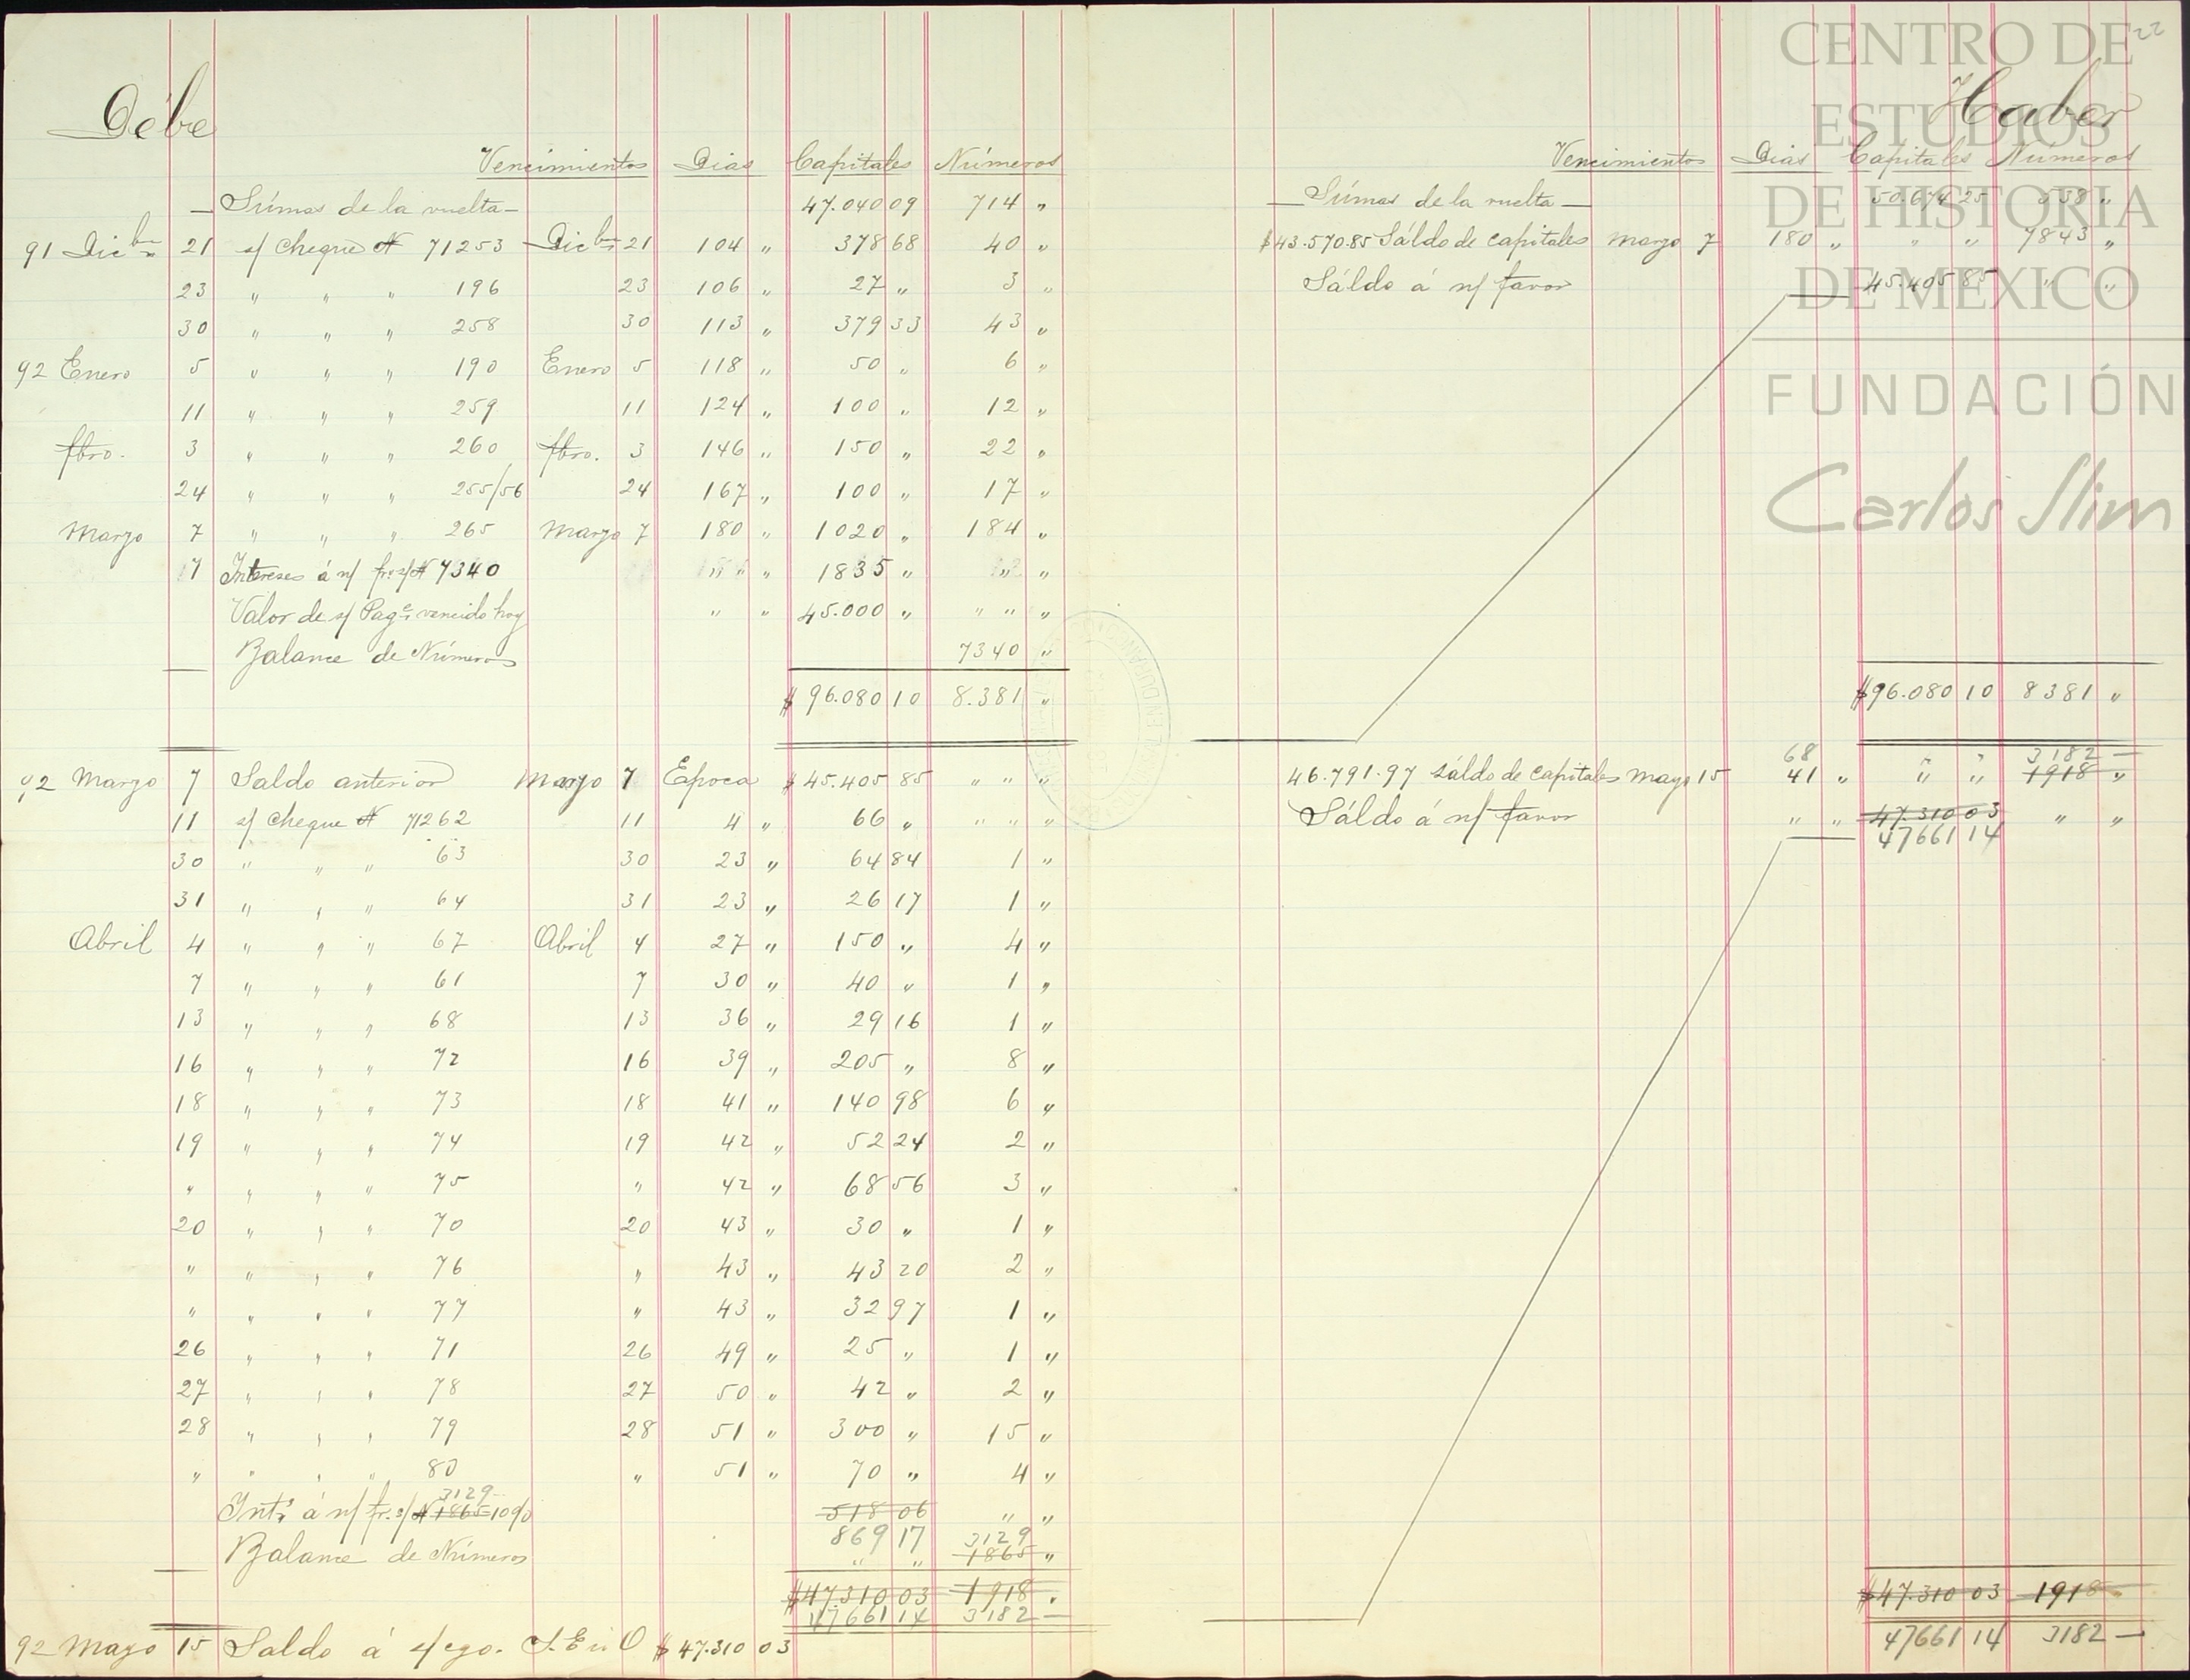 Débe
Vencimientos Dias Capitales Números
— Súmas de la vuelta — 47.040 09 714 "
91 Dicbre 21 s/ cheque N 71253 Dicbre 21 104 " 378 68 40 "
23 " " " 196 23 106 " 27 " 3 "
30 " " " 258 30 113 " 379 33 43 "
92 Enero 5 " " " 190 Enero 5 118 " 50 " 6 "
11 " " " 259 11 124 " 100 " 12 "
fbro. 3 " " " 260 fbro. 3 146 " 150 " 22 "
24 " " " 255/56 24 167 " 100 " 17 "
Marzo 7 " " " 265 Marzo 7 180 " 1020 " 184 "
7 Intereses á n/ fr. s/ N 7340 " " " 1835 " " "
Valor de s/ Pagé vencido hoy " " 45.000 " " " "
Balance de Números 7340 "
$ 96.080 10 8.381 "
92 Marzo 7 Saldo anterior Marzo 7 Epoca $ 45.405 85 " " "
11 s/ cheque N 71262 11 4 " 66 " " " "
30 " " " 63 30 23 " 64 84 1 "
31 " " " 64 31 23 " 26 17 1 "
Abril 4 " " " 67 Abril 4 27 " 150 " 4 "
7 " " " 61 7 30 " 40 " 1 "
13 " " " 68 13 36 " 29 16 1 "
16 " " " 72 16 39 " 205 " 8 "
18 " " " 73 18 41 " 140 98 6 "
19 " " " 74 19 42 " 52 24 2 "
" " " " 75 " 42 " 68 56 3 "
20 " " " 70 20 43 " 30 " 1 "
" " " " 76 " 43 " 43 20 2 "
" " " " 77 " 43 " 32 97 1 "
26 " " " 71 26 49 " 25 " 1 "
27 " " " 78 27 50 " 42 " 2 "
28 " " " 79 28 51 " 300 " 15 "
" " " " 80 " 51 " 70 " 4 "
3129
Ints. á n/ fr. s/ N 1865 10% 518 06 " "
869 17 3129
Balance de Números " " 1865 "
$ 47.310 03 1918 "
47661 14 3182 —
92 Mayo 15 Saldo á s/ cgo. S. E. ú O $ 47.310 03
22
Haber
Vencimientos Dias Capitales Números
— Súmas de la vuelta — 50.674 25 538 "
$ 43.570.85 Sáldo de capitales Marzo 7 180 " " " 7843 "
Sáldo á n/ favor 45.405 85 " "
$96.080 10 8381 "
68 3182 —
46.791.97 Sáldo de capitales Mayo 15 41 " " " 1918 "
Sáldo á n/ favor " " 47.310 03 " "
47661 14
$47.310 03 1918
47661 14 3182 —
CENTRO DE
ESTUDIOS
DE HISTORIA
DE MEXICO
FUNDACIÓN
Carlos Slim